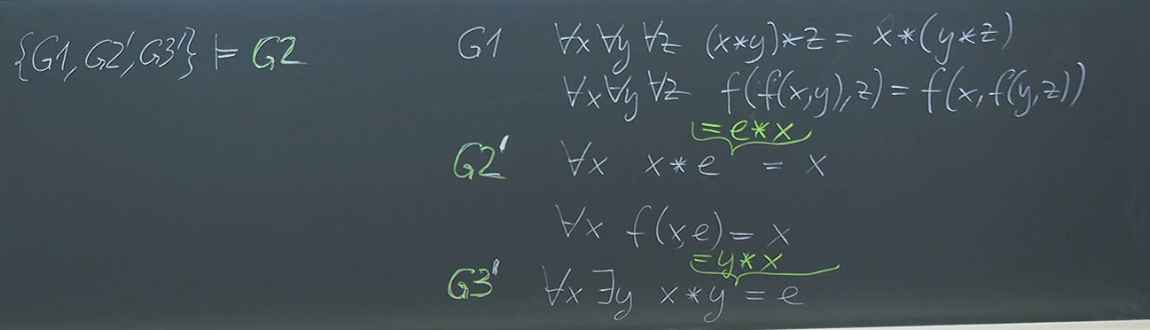 {G1, G2', G3'} ⊨ G2
G1 ∀x ∀y ∀z (x*y)*z = x*(y*z)
∀x ∀y ∀z f(f(x,y),z) = f(x,f(y,z))
= e*x
G2' ∀x x*e = x
∀x f(x,e) = x
= y*x
G3' ∀x ∃y x*y = e